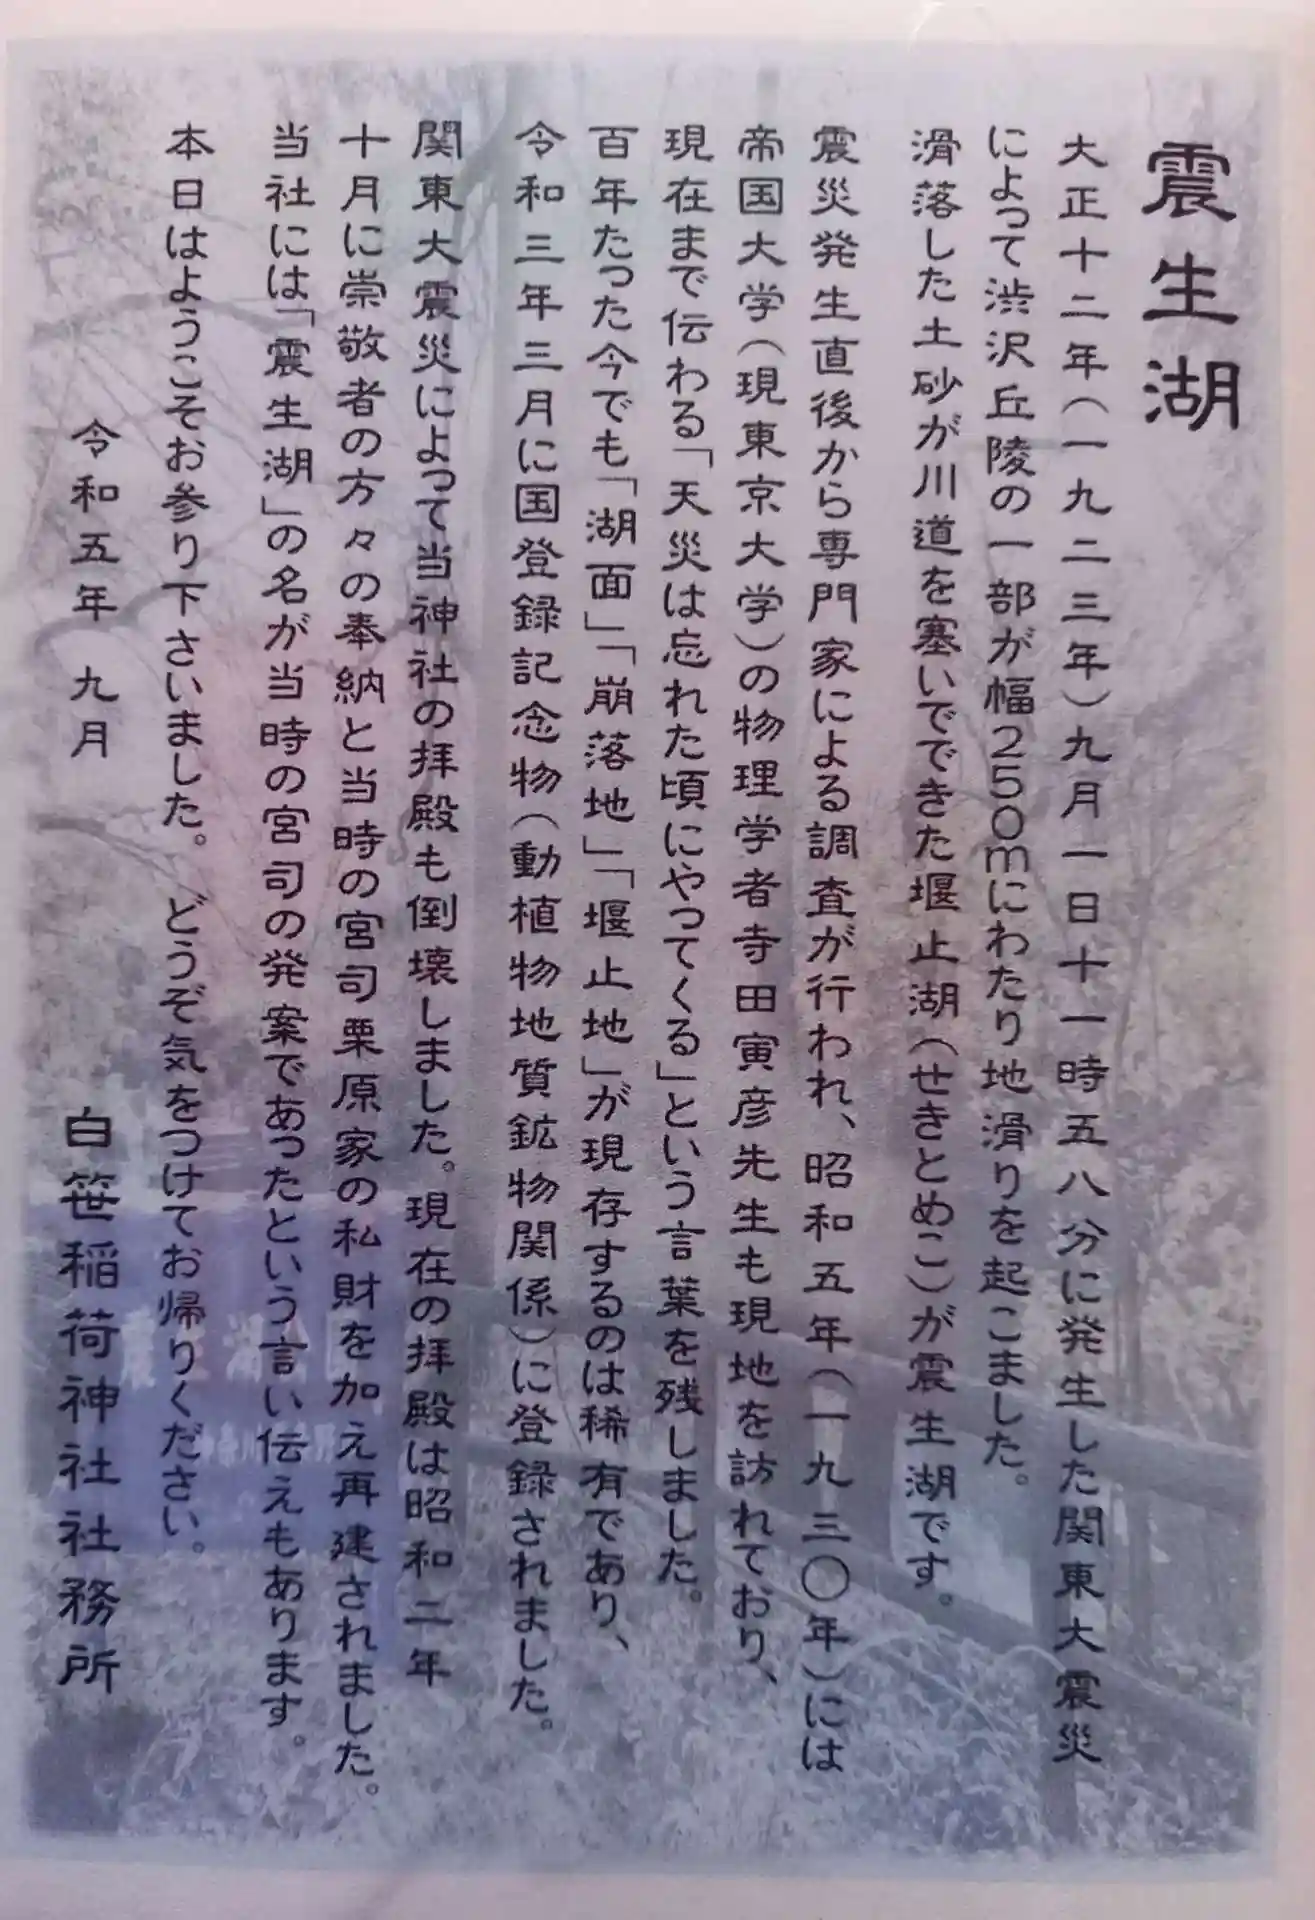 震生湖
大正十二年（一九二三年）九月一日十一時五八分に発生した関東大震災
によって渋沢丘陵の一部が幅250mにわたり地滑りを起こました。
滑落した土砂が川道を塞いでできた堰止湖（せきとめこ）が震生湖です。
震災発生直後から専門家による調査が行われ、昭和五年（一九三〇年）には
帝国大学（現東京大学）の物理学者寺田寅彦先生も現地を訪れており、
現在まで伝わる「天災は忘れた頃にやってくる」という言葉を残しました。
百年たった今でも「湖面」「崩落地」「堰止地」が現存するのは稀有であり、
令和三年三月に国登録記念物（動植物地質鉱物関係）に登録されました。
関東大震災によって当神社の拝殿も倒壊しました。現在の拝殿は昭和二年
十月に崇敬者の方々の奉納と当時の宮司栗原家の私財を加え再建されました。
当社には「震生湖」の名が当時の宮司の発案であったという言い伝えもあります。
本日はようこそお参り下さいました。どうぞ気をつけてお帰りください。
令和五年 九月
白笹稲荷神社社務所